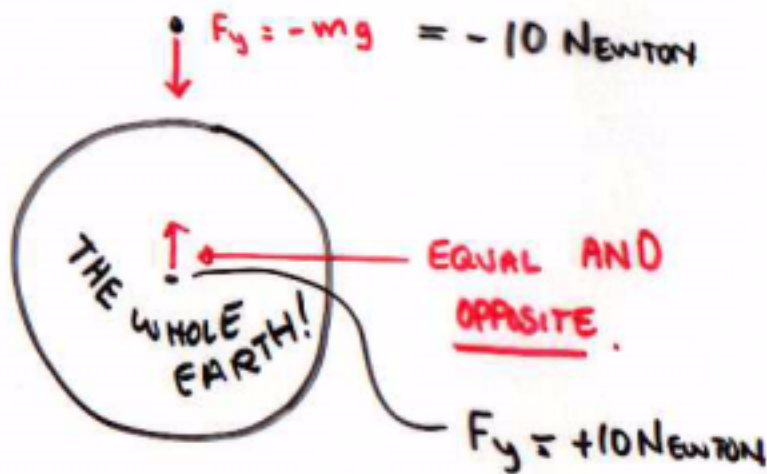 Fy = -mg = -10 NEWTON
THE WHOLE EARTH!
EQUAL AND
OPPOSITE.
Fy = +10 NEWTON